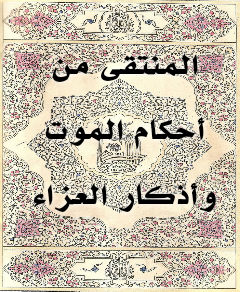 المنتقى من
أحكام الموت
وأذكار العزاء